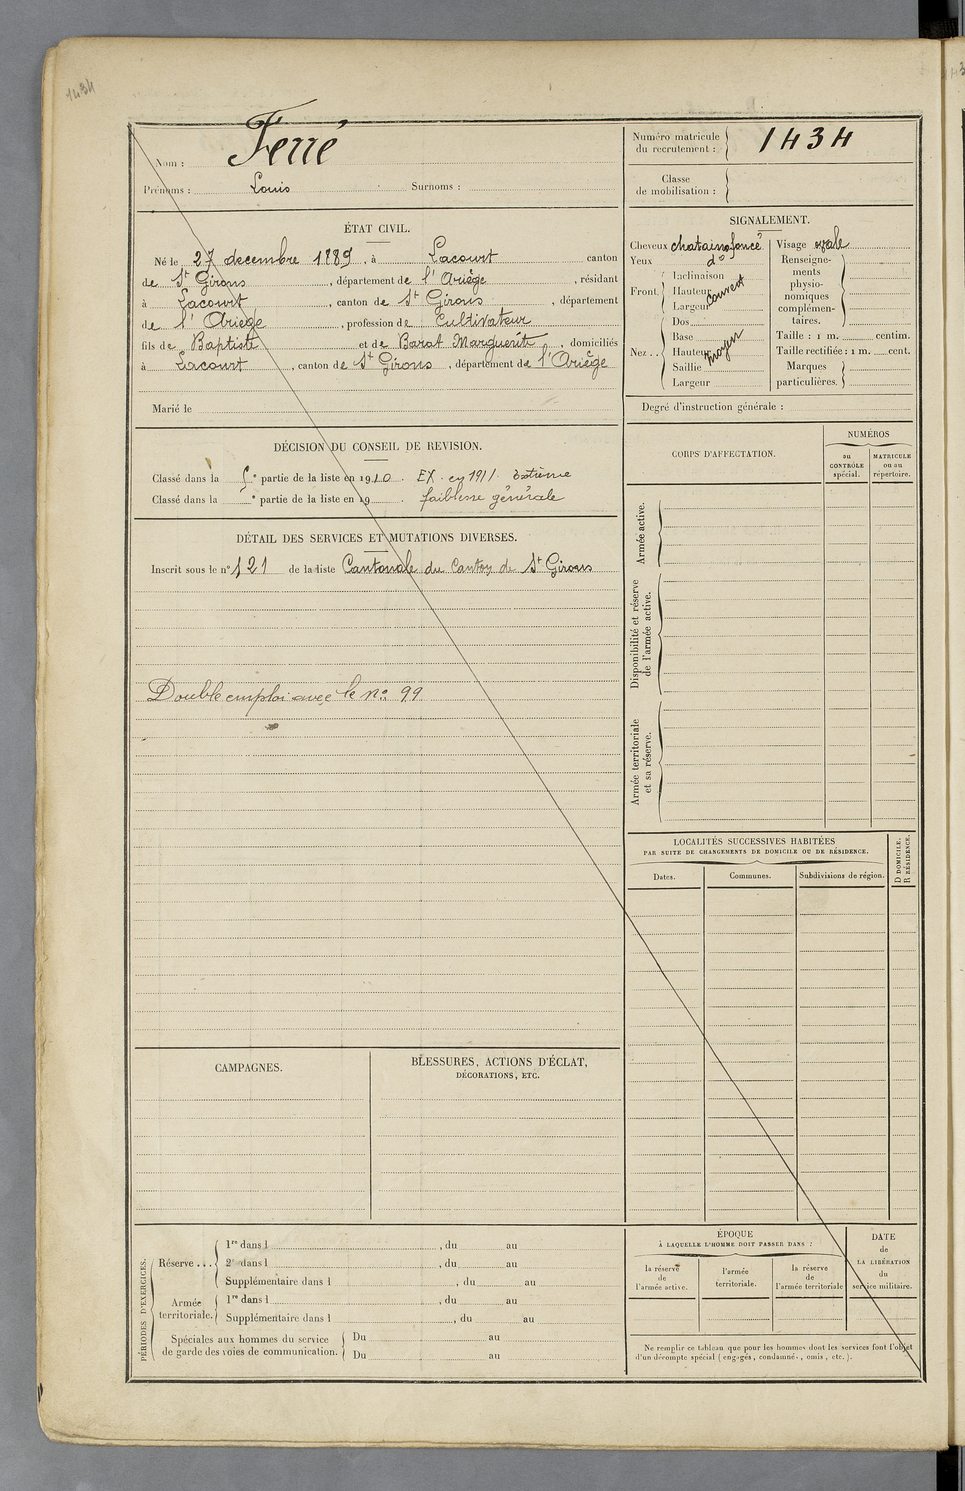 1434
Nom : Ferré
Prénoms : Louis Surnoms :
Numéro matricule du recrutement : 1434
Classe de mobilisation :
ÉTAT CIVIL.
Né le 27 decembre 1889, à Lacourt canton
de St Girons, département de l'Ariège, résidant
à Lacourt, canton de St Girons, département
de l'Ariège, profession de Cultivateur
fils de Baptiste et de Barat Marguerite, domiciliés
à Lacourt, canton de St Girons, département de l'Ariège
Marié le
SIGNALEMENT.
Cheveux chatains foncé Visage ovale
Yeux do
Front. Inclinaison
Hauteur couvert
Largeur
Nez .. Dos
Base
Hauteur moyen
Saillie
Largeur
Renseigne-
ments
physio-
nomiques
complémen-
taires.
Taille : 1 m. centim.
Taille rectifiée : 1 m. cent.
Marques
particulières.
Degré d'instruction générale :
DÉCISION DU CONSEIL DE REVISION.
Classé dans la 5e partie de la liste en 1910. EX. en 1911. Extrême
Classé dans la e partie de la liste en 19 . faiblesse générale
DÉTAIL DES SERVICES ET MUTATIONS DIVERSES.
Inscrit sous le n° 121 de la liste Cantonale du Canton de St Girons
Double emploi avec le no 99
CORPS D'AFFECTATION.
NUMÉROS
au CONTRÔLE spécial.
MATRICULE ou au répertoire.
Armée active.
Disponibilité et réserve de l'armée active.
Armée territoriale et sa réserve.
LOCALITÉS SUCCESSIVES HABITÉES
PAR SUITE DE CHANGEMENTS DE DOMICILE OU DE RÉSIDENCE.
Dates. Communes. Subdivisions de région. D DOMICILE. R RÉSIDENCE.
CAMPAGNES.
BLESSURES, ACTIONS D'ÉCLAT,
DÉCORATIONS, ETC.
PÉRIODES D'EXERCICES.
Réserve ... 1re dans l , du au
2e dans l , du au
Supplémentaire dans l , du au
Armée territoriale. 1re dans l , du au
Supplémentaire dans l , du au
Spéciales aux hommes du service Du au
de garde des voies de communication. Du au
ÉPOQUE
À LAQUELLE L'HOMME DOIT PASSER DANS :
la réserve de l'armée active.
l'armée territoriale.
la réserve de l'armée territoriale
DATE
de
LA LIBÉRATION
du
service militaire.
Ne remplir ce tableau que pour les hommes dont les services font l'objet
d'un décompte spécial (engagés, condamnés, omis, etc.).